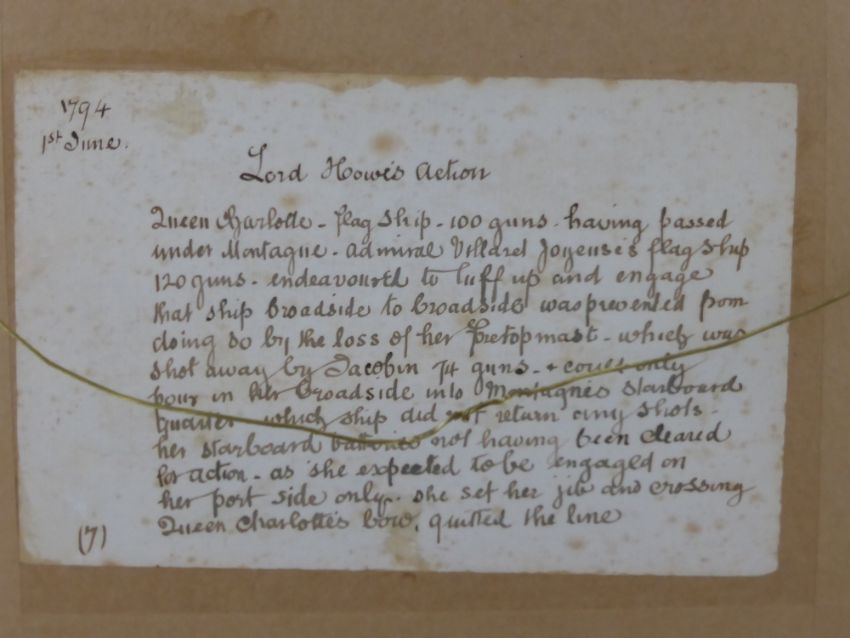 1794
1st June.
Lord Howe's Action
Queen Charlotte - flag ship - 100 guns - having passed
under Montagne - Admiral Villaret Joyeuse's flag ship
120 guns - endeavoured to luff up and engage
that ship broadside to broadside was prevented from
doing so by the loss of her foretopmast - which was
shot away by Jacobin 74 guns - & could only
pour in her broadside into Montagne's starboard
Quarter which ship did not return any shots -
her starboard batteries not having been cleared
for action - as she expected to be engaged on
her port side only. she set her jib and crossing
Queen Charlotte's bow, quitted the line
(7)